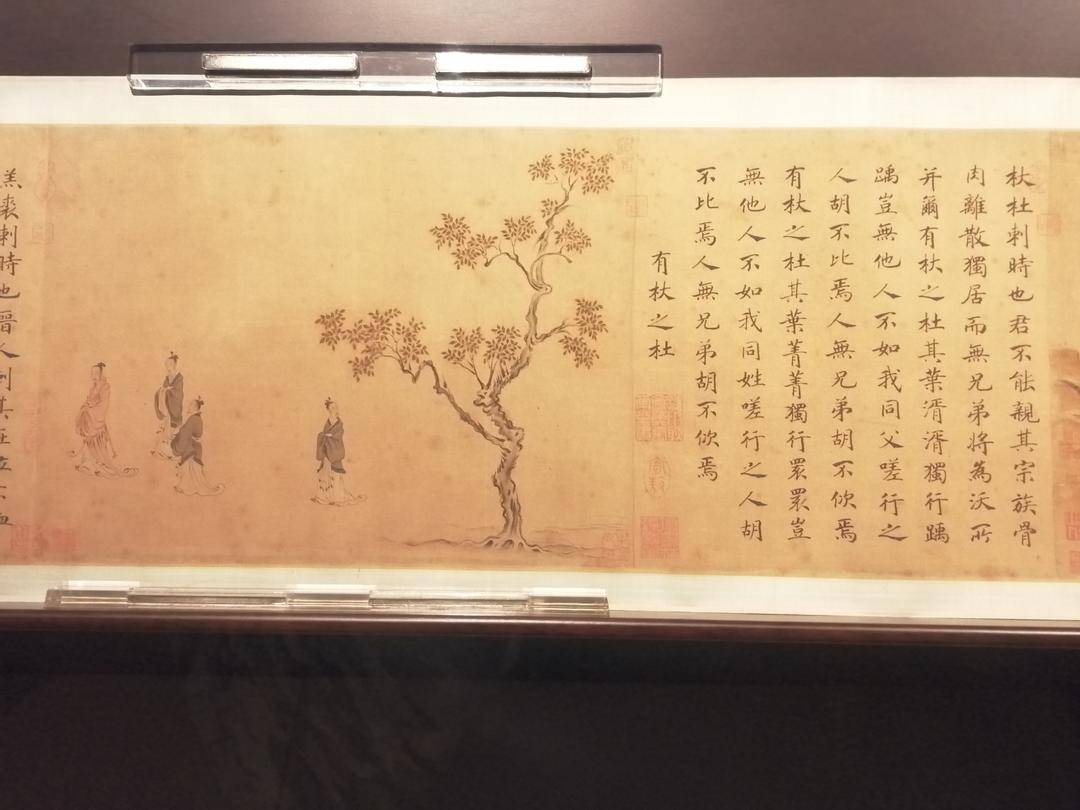 杕杜刺時也君不能親其宗族骨
肉離散獨居而無兄弟將為沃所
并爾有杕之杜其葉湑湑獨行踽
踽豈無他人不如我同父嗟行之
人胡不比焉人無兄弟胡不佽焉
有杕之杜其葉菁菁獨行睘睘豈
無他人不如我同姓嗟行之人胡
不比焉人無兄弟胡不佽焉
有杕之杜
羔裘刺時也晉人刺其在位不恤